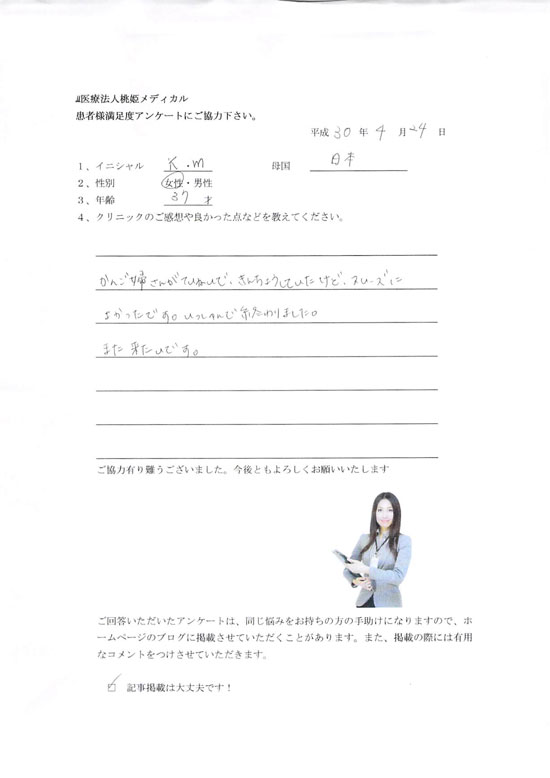 医療法人桃姫メディカル
患者様満足度アンケートにご協力下さい。
平成 30 年 4 月 24 日
1、イニシャル K.m 母国 日本
2、性別 女性・男性
3、年齢 37 才
4、クリニックのご感想や良かった点などを教えてください。
かんご婦さんがていねいで、きんちょうしていたけど、スムーズに
よかったです。いっしゅんで終わりました。
また来たいです。
ご協力有り難うございました。今後ともよろしくお願いいたします
ご回答いただいたアンケートは、同じ悩みをお持ちの方の手助けになりますので、ホ
ームページのブログに掲載させていただくことがあります。また、掲載の際には有用
なコメントをつけさせていただきます。
☑ 記事掲載は大丈夫です！